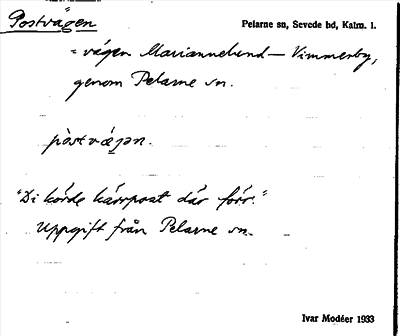 Postvägen
Pelarne sn, Sevede hd, Kalm. l.
= vägen Mariannelund – Vimmerby,
genom Pelarne sn.
pòstvæ̨jən.
"Di kórde kärrpost där förr."
Uppgift från Pelarne sn.
Ivar Modéer 1933